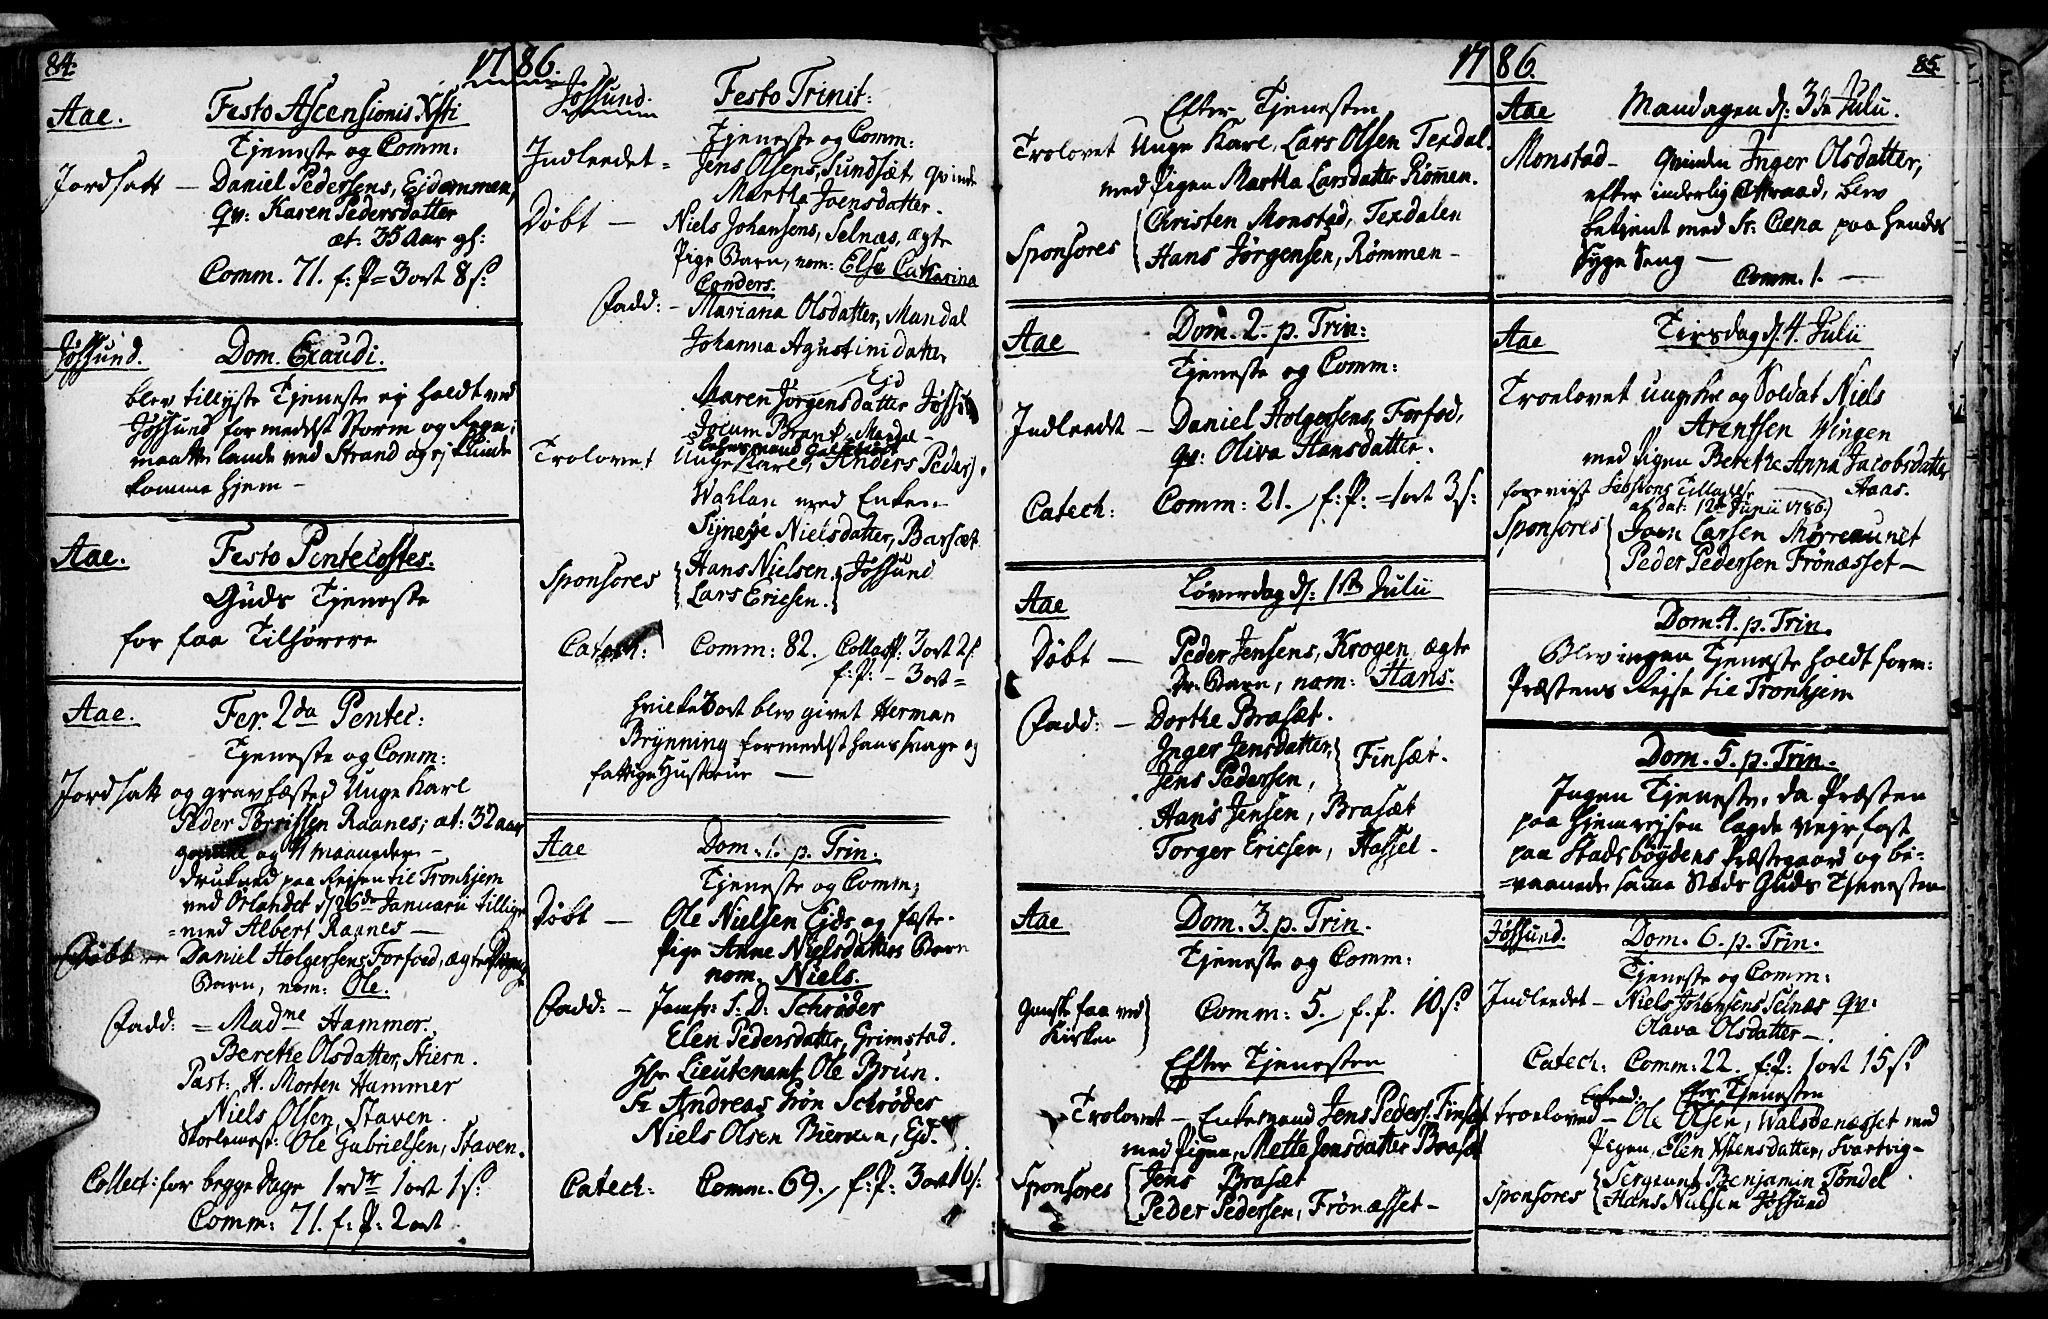 84.
1786.
Aae. Festo Ascensionis Xsti
Tjeneste og Comm:
Jordsatt — Daniel Pedersens, Ejdemmen,
Qv: Karen Pedersdatter
æt: 35 Aar gl:
Comm. 71. f: P = 3 ort 8 s:
Jøssund. Dom. Exaudi.
blev tillyste Tjeneste ej holdt ved
Jøssund formedelst Storm og Regn,
maatte lande ved Strand og ej kunde
komme hjem —
Aae. Festo Pentecostes.
Guds Tjeneste
for faa Tilhørere
Aae. Fer. 2da Pentec:
Tjeneste og Comm:
Jordsatt og gravfæsted Unge Karl
Peder Torrissen Raanes; æt: 32 aar
gamle og 11 maaneder —
drukned paa Rejsen til Tronhjem
ved Ørlandet d 26de Januarii tillige
= med Albert Raanes —
Døbt — Daniel Holgersens Forfoed, ægte
Barn, nom: Ole.
Fadd: = Madme Hammer.
Berethe Olsdatter, Stiern.
Past: H. Morten Hammer
Niels Olsen, Staven.
Ole Gabrielsen, Staven.
Collect: for begge Dage 1 rdr 1 ort 1 s:
Comm: 71. f: P: 2 ort
Jøssund. Festo Trinit:
Tjeneste og Comm:
Indleedet = Jens Olsens, Sundsæt qvinde
Martha Joensdatter.
Døbt — Niels Johansens, Selnæs, ægte
Pige Barn, nom: Else Catharina
Conders.
Fadd: — Mariana Olsdatter, Mandal
Johanna Agustinidatter
Ejd
Maren Jørgensdatter Jøssund
Jocum Brant. Mandal —
Trolovet Unge Karl, Anders Peders.
Wahlan med Enken
Synesje Nielsdatter, Barsæt
Sponsores Hans Nielsen. Jøssund
Lars Ericsen.
Catech: Comm: 82. Collect: 3 ort 2 s
f: P: — 3 ort =
hvilke 3 ort blev givet Herman
Brynning formedelst hans svage og
fattige Hustrue —
Aae Dom. 1. p. Trin.
Tjeneste og Comm:
Døbt — Ole Nielsen Ejds og fæste-
Pige Anne Nielsdatters Barn
nom. Niels.
Fadd: — Jomfr: S: D: Schrøder
Elen Pedersdatter, Grimstad.
Hr Lieutenant Ole Brun.
Sr Andreas Grøn Schrøder
Niels Olsen Bierken, Ejd.
Catech: Comm. 69. f: P: 3 ort 16 s:
1786.
85.
Efter Tjenesten
Trolovet Unge Karl, Lars Olsen Terdal.
med Pigen Martha Larsdatter Rømen.
Sponsores Christen Monstad, Terdalen
Hans Jørgensen, Rømmen —
Aae Dom. 2. p. Trin:
Tjeneste og Comm:
Indleedt — Daniel Holgersens, Forfod,
qv: Oliva Hansdatter.
Catech: Comm: 21. f: P: = 1 ort 3 s:
Aae Løverdag d: 1ste Julii
Døbt — Peder Jensens, Krogen, ægte
Dr. Barn, nom: Hans.
Fadd: — Dorthe Brasæt.
Inger Jensdatter, Finsæt.
Jens Pedersen,
Hans Jensen, Brasæt
Torger Ericsen, Hassel —
Aae Dom. 3. p. Trin.
Tjeneste og Comm:
Ganske faa ved Kirken Comm: 5. f. P. 10 s:
Efter Tjenesten
Trolovet — Enkemand Jens Peders. Finsæt
med Pigen, Mette Jensdatter Brasæt
Sponsores Jens Brasæt
Peder Pedersen, Frønæsset —
Aae Mandagen d: 3de Julii.
Monstad — Qvinden Inger Olsdatter,
efter inderlig Attraad, blev
betjent med St: Cena paa hendes
Syge Seng —
Comm. 1. —
Aae Tirsdag d. 4. Julii
Troelovet ungkr og Soldat Niels
Arentssen Wingen
med Pigen Berethe Anna Jacobsdatter
Aaas.
foreviist Sessions Tilladelse
af dat: 12te Junii 1786.
Sponsores Joen Larsen Mørreaunet
Peder Pedersen Frønæsset —
Dom. 4. p. Trin.
Blev ingen Tjeneste holdt form:
Præstens Rejse til Tronhjem
Dom. 5. p. Trin.
Ingen Tjeneste, da Præsten
paa hjemrejsen lagde vejrfast
paa Stadsbøgdens Præstegaard og be-
=vaanede samme Steds Guds Tjenesten
Jøssund. Dom. 6. p. Trin.
Tjeneste og Comm:
Indleedet — Niels Johansens Selnæs qv:
Olava Olsdatter —
Catech: Comm: 22. f: P: 1 ort 15 s:
Efter Tjenesten
troeloved — Ole Olsen, Walsøenæsset med
Pigen, Elen Xstensdatter, Svartvig —
Sponsores Sergeant Benjamin Tøndel
Hans Nielsen Jøssund